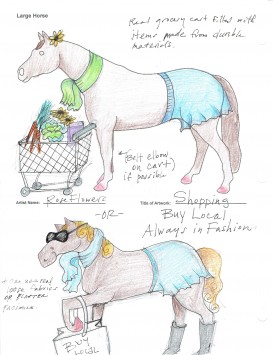 Large Horse
Real grocery cart filled with
items made from durable
materials.
* (Bolt elbow
on cart)
if possible
Artist Name: Rose Flowers Title of Artwork: Shopping
-OR-
Buy Local
Always in Fashion
* Can use real
fabrics
OR
BUY
LOCAL